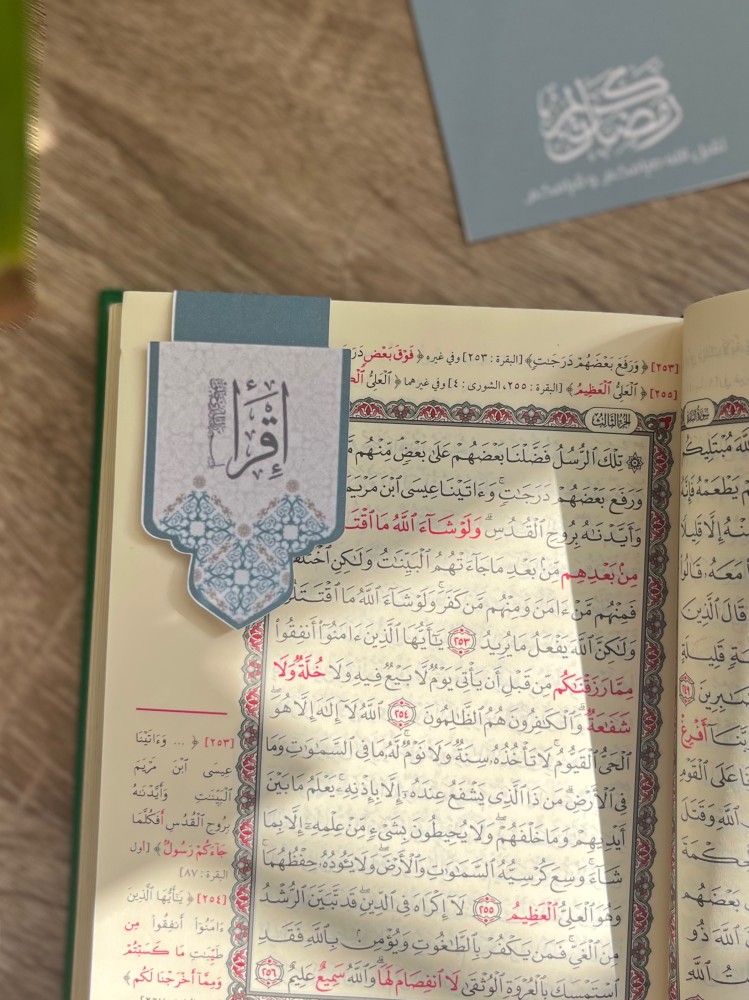 رمضان كريم
تقبل الله صيامكم وقيامكم
[٢٥٣] ﴿ وَرَفَعَ بَعْضَهُمْ دَرَجَٰتٍ﴾ [البقرة : ٢٥٣] وفي غيره ﴿ فَوْقَ بَعْضٍ
[٢٥٥] ﴿ ٱلْعَلِىُّ ٱلْعَظِيمُ﴾ [البقرة : ٢٥٥، الشورى : ٤] وفي غيرهما ﴿ ٱلْعَلِىُّ
ٱلجُزءُ ٱلثَّالِثُ
اقْرَأْ
تِلْكَ ٱلرُّسُلُ فَضَّلْنَا بَعْضَهُمْ عَلَىٰ بَعْضٍۘ مِّنْهُم
وَرَفَعَ بَعْضَهُمْ دَرَجَٰتٍۚ وَءَاتَيْنَا عِيسَى ٱبْنَ مَرْيَمَ
وَأَيَّدْنَٰهُ بِرُوحِ ٱلْقُدُسِۗ وَلَوْ شَآءَ ٱللَّهُ مَا
مِنۢ بَعْدِهِم مِّنۢ بَعْدِ مَا جَآءَتْهُمُ ٱلْبَيِّنَٰتُ وَلَٰكِنِ
فَمِنْهُم مَّنْ ءَامَنَ وَمِنْهُم مَّن كَفَرَۚ وَلَوْ شَآءَ ٱللَّهُ مَا ٱقْتَتَلُوا۟
وَلَٰكِنَّ ٱللَّهَ يَفْعَلُ مَا يُرِيدُ ٢٥٣ يَٰٓأَيُّهَا ٱلَّذِينَ ءَامَنُوٓا۟ أَنفِقُوا۟
مِمَّا رَزَقْنَٰكُم مِّن قَبْلِ أَن يَأْتِىَ يَوْمٌ لَّا بَيْعٌ فِيهِ وَلَا خُلَّةٌ وَلَا
شَفَٰعَةٌۗ وَٱلْكَٰفِرُونَ هُمُ ٱلظَّٰلِمُونَ ٢٥٤ ٱللَّهُ لَآ إِلَٰهَ إِلَّا هُوَ
ٱلْحَىُّ ٱلْقَيُّومُۚ لَا تَأْخُذُهُۥ سِنَةٌ وَلَا نَوْمٌۚ لَّهُۥ مَا فِى ٱلسَّمَٰوَٰتِ وَمَا
فِى ٱلْأَرْضِۗ مَن ذَا ٱلَّذِى يَشْفَعُ عِندَهُۥٓ إِلَّا بِإِذْنِهِۦۚ يَعْلَمُ مَا بَيْنَ
أَيْدِيهِمْ وَمَا خَلْفَهُمْۖ وَلَا يُحِيطُونَ بِشَىْءٍ مِّنْ عِلْمِهِۦٓ إِلَّا بِمَا
شَآءَۚ وَسِعَ كُرْسِيُّهُ ٱلسَّمَٰوَٰتِ وَٱلْأَرْضَۖ وَلَا يَـُٔودُهُۥ حِفْظُهُمَاۚ
وَهُوَ ٱلْعَلِىُّ ٱلْعَظِيمُ ٢٥٥ لَآ إِكْرَاهَ فِى ٱلدِّينِۖ قَد تَّبَيَّنَ ٱلرُّشْدُ
مِنَ ٱلْغَىِّۚ فَمَن يَكْفُرْ بِٱلطَّٰغُوتِ وَيُؤْمِنۢ بِٱللَّهِ فَقَدِ
ٱسْتَمْسَكَ بِٱلْعُرْوَةِ ٱلْوُثْقَىٰ لَا ٱنفِصَامَ لَهَاۗ وَٱللَّهُ سَمِيعٌ عَلِيمٌ ٢٥٦
[٢٥٣] ﴿ ... وَءَاتَيْنَا
عِيسَى ٱبْنَ مَرْيَمَ
ٱلْبَيِّنَٰتِ وَأَيَّدْنَٰهُ
بِرُوحِ ٱلْقُدُسِ أَفَكُلَّمَا
جَآءَكُمْ رَسُولٌ﴾ [أول
البقرة : ٨٧]
[٢٥٤] ﴿ يَٰٓأَيُّهَا ٱلَّذِينَ
ءَامَنُوٓا۟ أَنفِقُوا۟ مِن
طَيِّبَٰتِ مَا كَسَبْتُمْ
وَمِمَّآ أَخْرَجْنَا لَكُم﴾
مُبْتَلِيكُم
قَالَ ٱلَّذِينَ
قَلِيلَةٍ
أَفْرِغْ
عَلَى ٱلْقَوْمِ
وَقَتَلَ
بَعْضَهُم
ٱللَّهَ ذُو